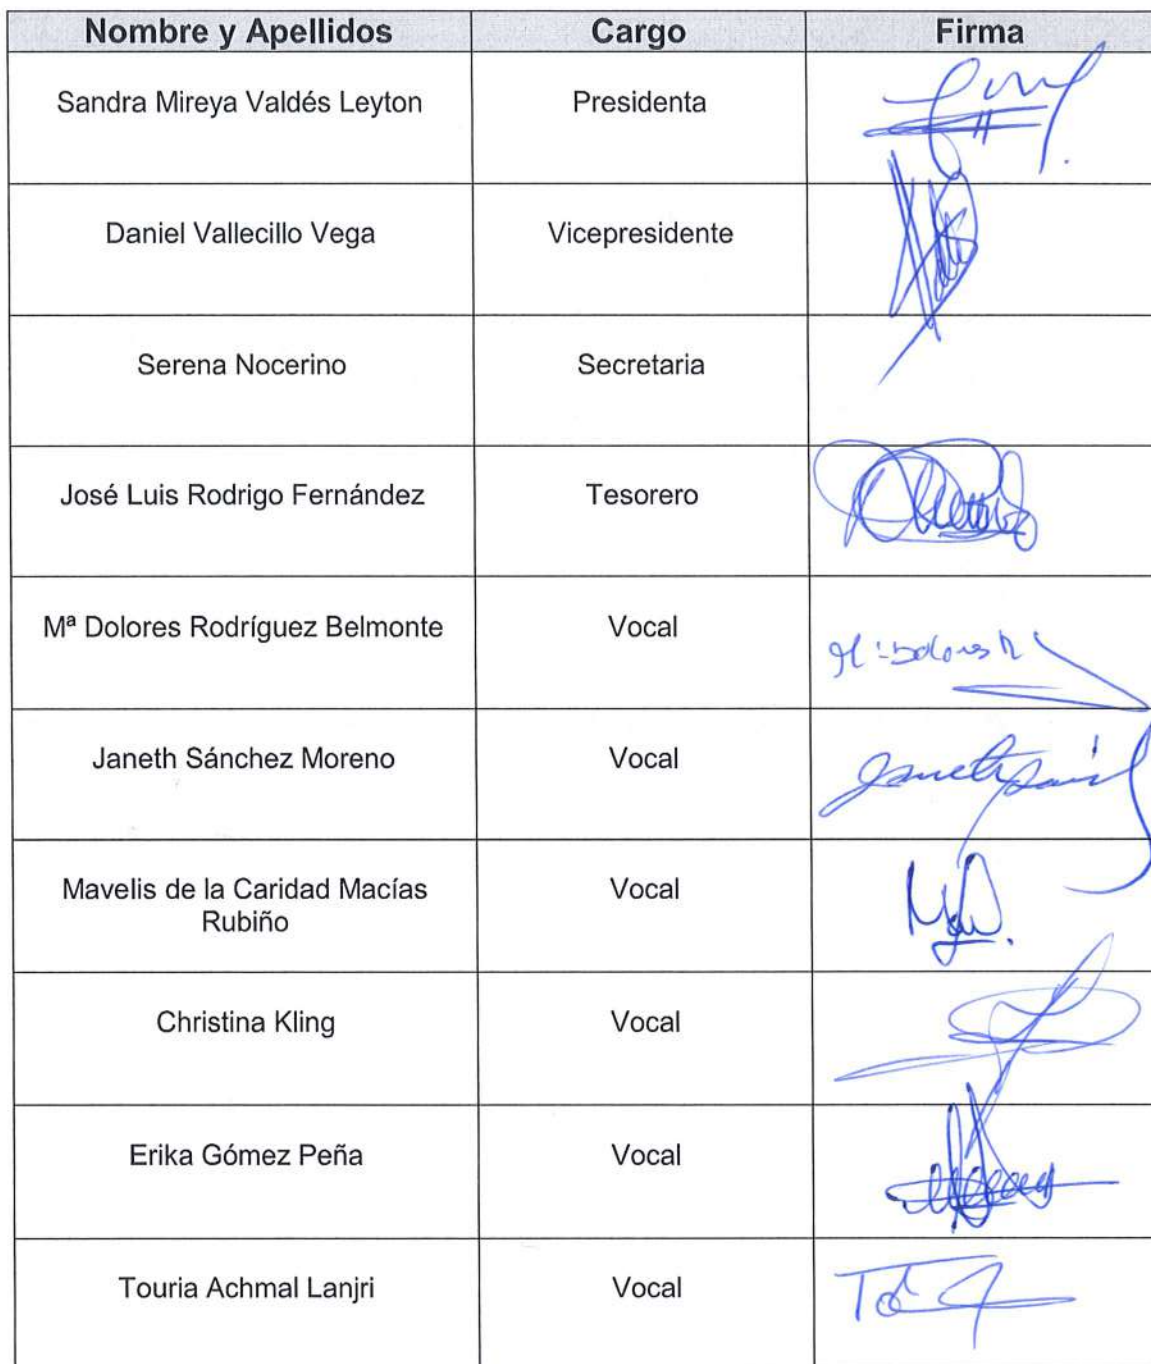 Nombre y Apellidos Cargo Firma
Sandra Mireya Valdés Leyton Presidenta
Daniel Vallecillo Vega Vicepresidente
Serena Nocerino Secretaria
José Luis Rodrigo Fernández Tesorero
Mª Dolores Rodríguez Belmonte Vocal
Janeth Sánchez Moreno Vocal
Mavelis de la Caridad Macías Vocal
Rubiño
Christina Kling Vocal
Erika Gómez Peña Vocal
Touria Achmal Lanjri Vocal